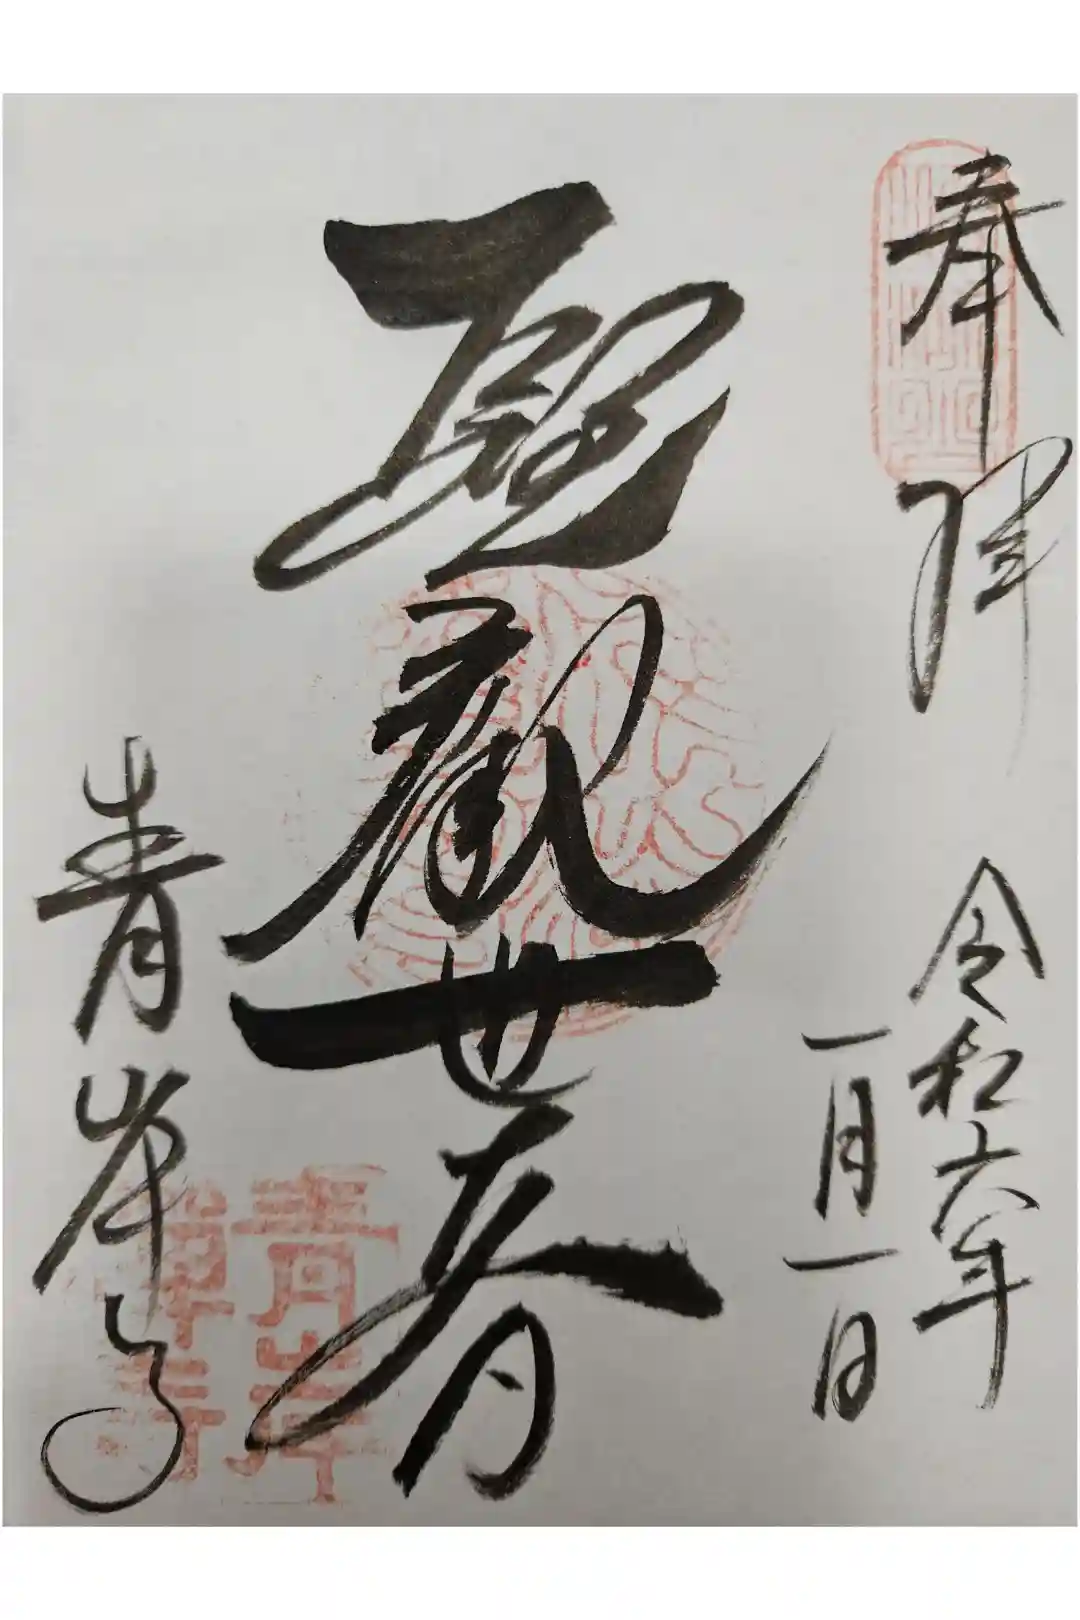 奉拝
令和六年
一月一日
聖觀世音
青岸寺
青岸
禅寺